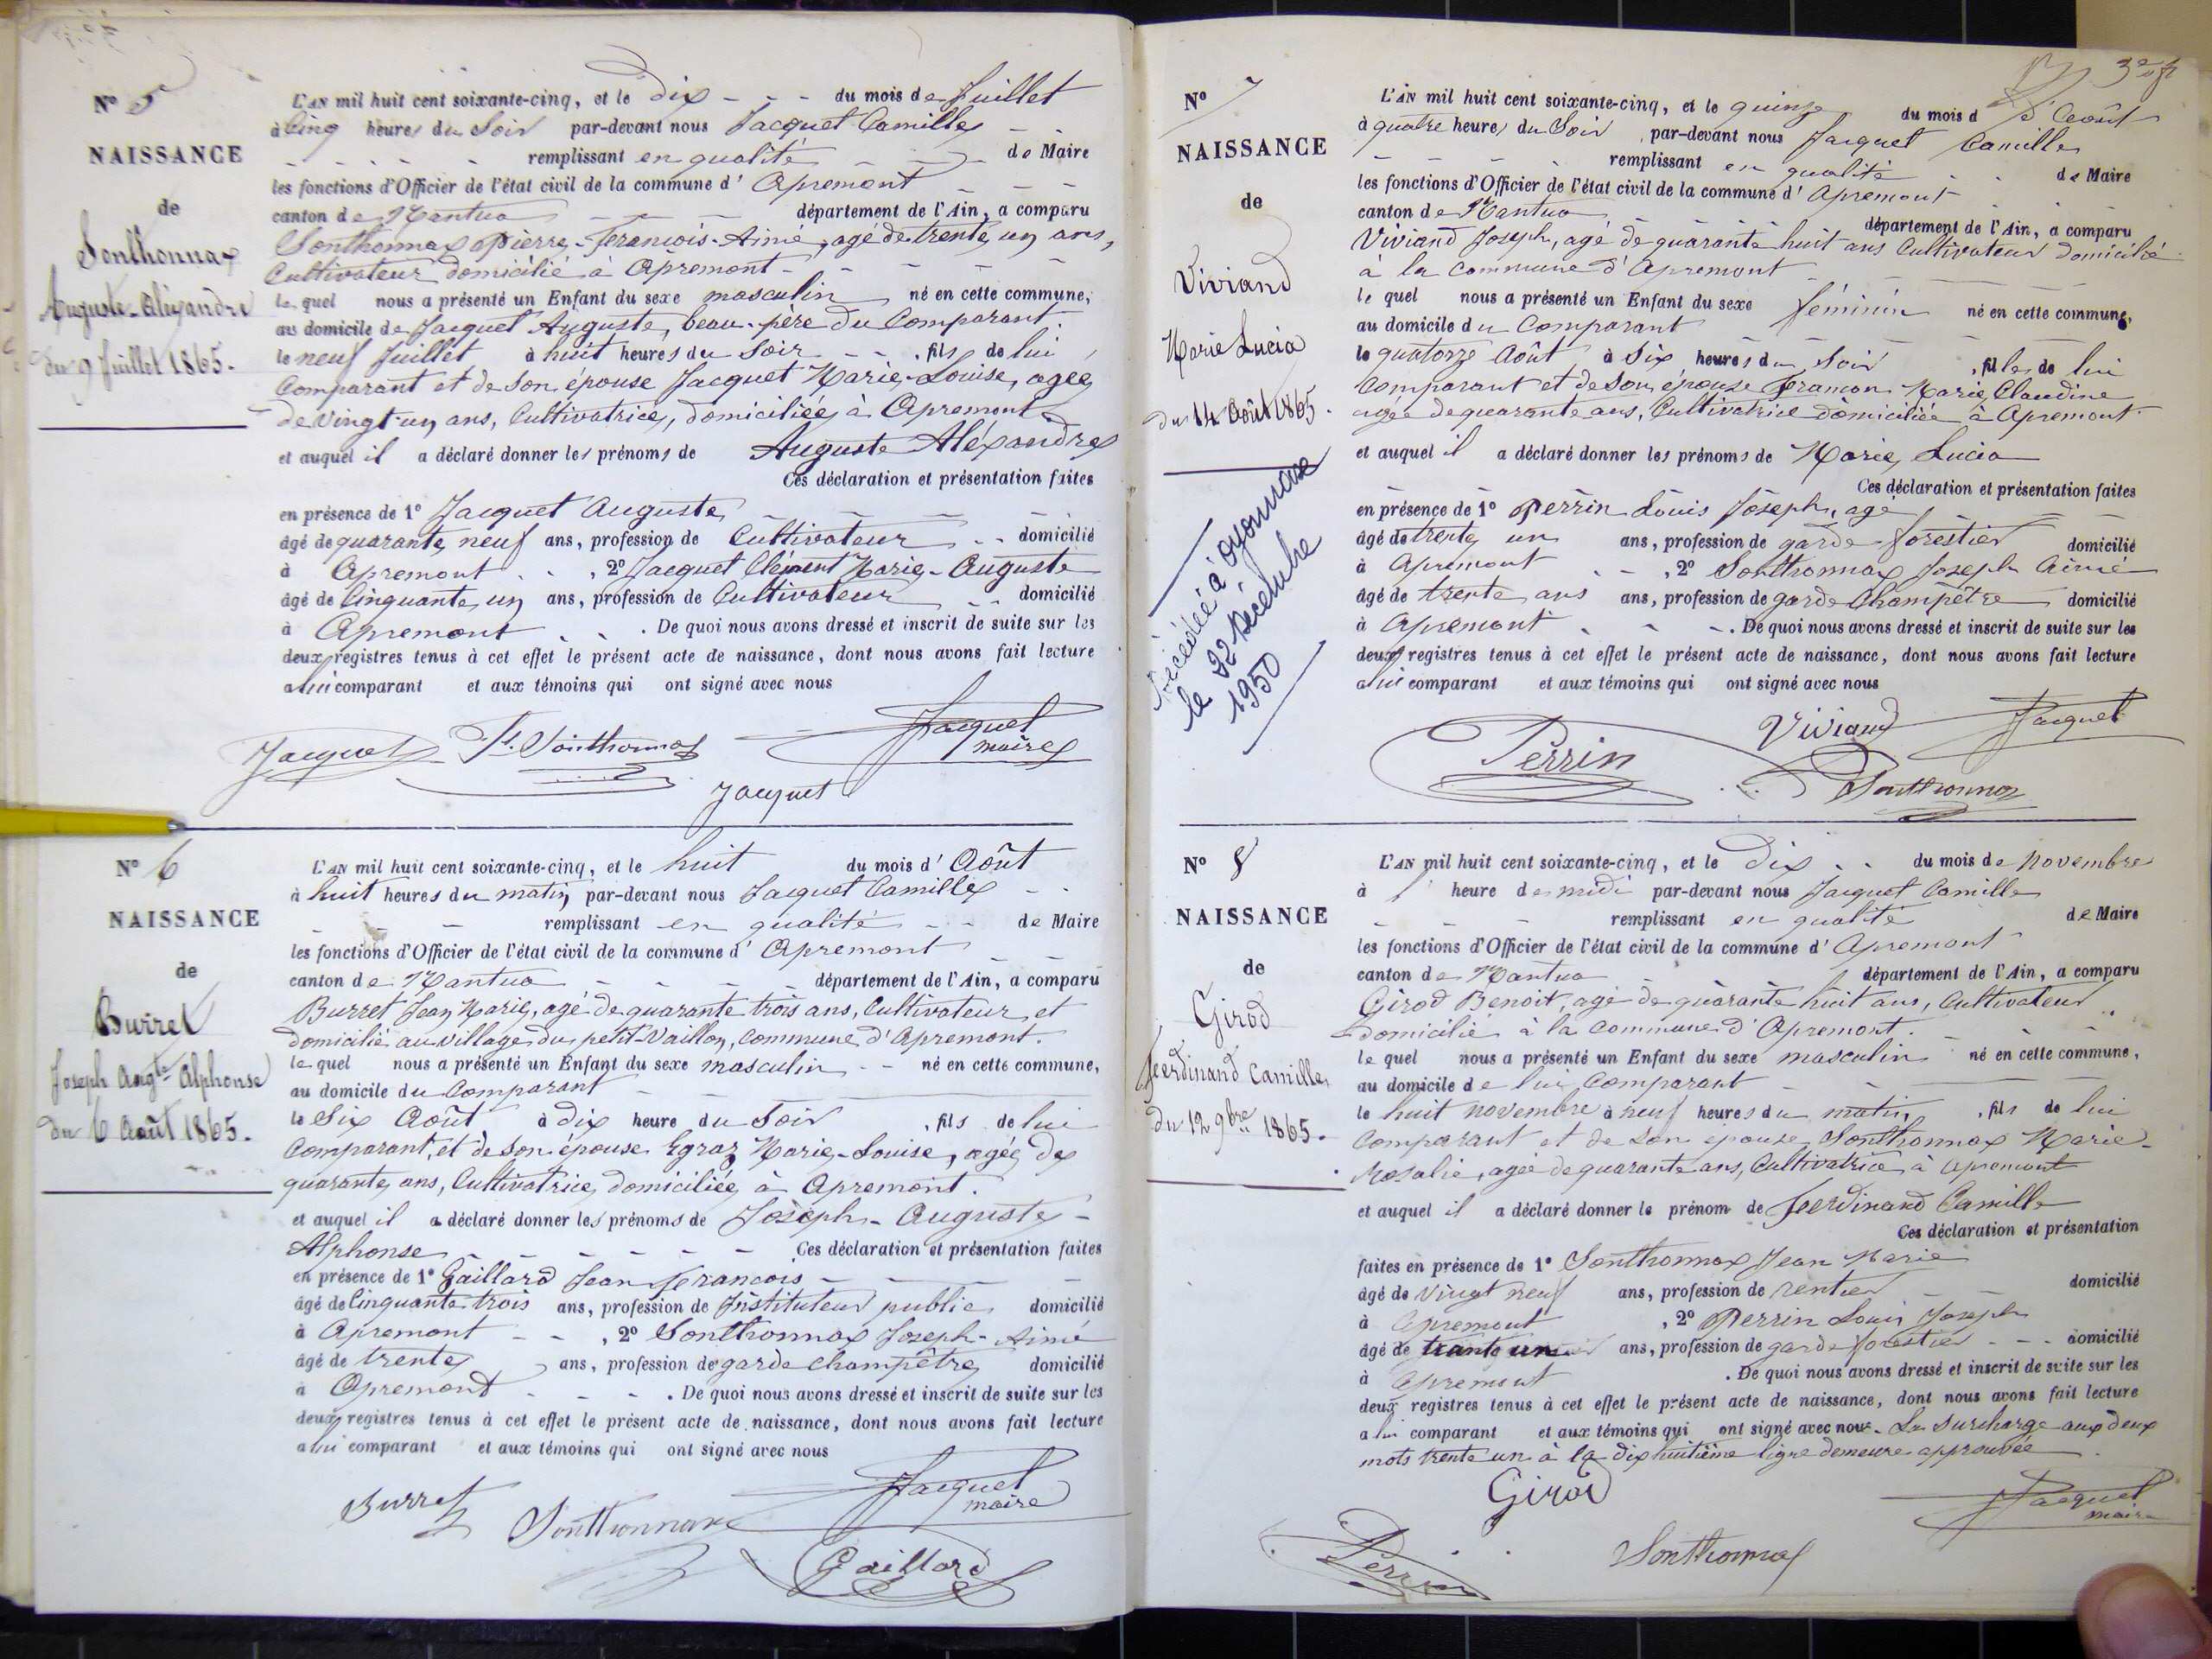 N° 5
NAISSANCE
de
Sonthonnax
Auguste-Aléxandre
du 9 Juillet 1865.
L'AN mil huit cent soixante-cinq, et le dix - - - du mois de Juillet
à cinq heures du Soir par-devant nous Jacquet Camille
remplissant en qualité de Maire
les fonctions d'Officier de l'état civil de la commune d' Apremont
canton de Nantua département de l'Ain, a comparu
Sonthonnax Pierre-François-Aimé, agé de trente un ans,
Cultivateur domicilié à Apremont -
le quel nous a présenté un Enfant du sexe masculin né en cette commune,
au domicile de Jacquet Auguste, beau-père du Comparant
le neuf Juillet à huit heures du Soir - - , fils de lui
Comparant et de son épouse Jacquet Marie-Louise, agée
de vingt-un ans, Cultivatrice, domiciliée à Apremont
et auquel il a déclaré donner les prénoms de Auguste Aléxandre
Ces déclaration et présentation faites
en présence de 1° Jacquet Auguste
âgé de quarante neuf ans, profession de Cultivateur - - domicilié
à Apremont - - , 2° Jacquet Clément Marie-Auguste
âgé de Cinquante un ans, profession de Cultivateur - - domicilié
à Apremont . . . De quoi nous avons dressé et inscrit de suite sur les
deux registres tenus à cet effet le présent acte de naissance, dont nous avons fait lecture
a lui comparant et aux témoins qui ont signé avec nous
Jacquet Sonthonnax Jacquet
maire
Jacquet
N° 6
NAISSANCE
de
Burret
Joseph Augte Alphonse
du 6 Août 1865.
L'AN mil huit cent soixante-cinq, et le huit du mois d' Août
à huit heures du matin, par-devant nous Jacquet Camille - -
remplissant en qualité - - de Maire
les fonctions d'Officier de l'état civil de la commune d' Apremont
canton de Nantua département de l'Ain, a comparu
Burret Jean Marie, agé de quarante trois ans, Cultivateur et
domicilié au village du petit-Vaillon, commune d'Apremont.
le quel nous a présenté un Enfant du sexe masculin - - né en cette commune,
au domicile du Comparant
le Six Août à dix heure du Soir , fils de lui
Comparant, et de son épouse Egraz Marie-Louise, agée de
quarante ans, Cultivatrice domiciliée à Apremont.
et auquel il a déclaré donner les prénoms de Joseph - Auguste -
Alphonse Ces déclaration et présentation faites
en présence de 1° Gaillard Jean François
âgé de Cinquante trois ans, profession de Instituteur public domicilié
à Apremont - - , 2° Sonthonnax Joseph-Aimé
âgé de trente ans, profession de garde champêtre domicilié
à Apremont - - - . De quoi nous avons dressé et inscrit de suite sur les
deux registres tenus à cet effet le présent acte de naissance, dont nous avons fait lecture
a lui comparant et aux témoins qui ont signé avec nous
Burret Sonthonnax Jacquet
maire
Gaillard
N° 7
NAISSANCE
de
Viviand
Marie Lucia
du 14 Août 1865.
Décédée à Oyonnax
le 22 Décembre
1950
L'AN mil huit cent soixante-cinq, et le quinze du mois d' Août
à quatre heures du Soir par-devant nous Jacquet Camille
remplissant en qualité de Maire
les fonctions d'Officier de l'état civil de la commune d' Apremont
canton de Nantua département de l'Ain, a comparu
Viviand Joseph, agé de quarante huit ans Cultivateur domicilié
à la commune d'Apremont
le quel nous a présenté un Enfant du sexe féminin né en cette commune,
au domicile du Comparant
le quatorze Août à Six heures du Soir , fille de lui
Comparant et de son épouse Framon Marie Claudine
agée de quarante ans, Cultivatrice domiciliée à Apremont
et auquel il a déclaré donner les prénoms de Marie Lucia
Ces déclaration et présentation faites
en présence de 1° Perrin Louis Joseph, agé
âgé de trente un ans, profession de garde forestier domicilié
à Apremont - - , 2° Sonthonnax Joseph Aimé
âgé de trente ans ans, profession de garde Champêtre domicilié
à Apremont - - - . De quoi nous avons dressé et inscrit de suite sur les
deux registres tenus à cet effet le présent acte de naissance, dont nous avons fait lecture
a lui comparant et aux témoins qui ont signé avec nous
Viviand Jacquet
Perrin Sonthonnax
N° 8
NAISSANCE
de
Girod
Ferdinand Camille
du 12 9bre 1865.
L'AN mil huit cent soixante-cinq, et le dix - - du mois de Novembre
à heure de midi par-devant nous Jacquet Camille
remplissant en qualité de Maire
les fonctions d'Officier de l'état civil de la commune d' Apremont
canton de Nantua département de l'Ain, a comparu
Girod Benoit, agé de quarante huit ans, Cultivateur
domicilié à la commune d'Apremont.
le quel nous a présenté un Enfant du sexe masculin né en cette commune,
au domicile de lui Comparant
le huit novembre à neuf heures du matin , fils de lui
Comparant et de son épouse Sonthonnax Marie-
Rosalie, agée de quarante ans, Cultivatrice à Apremont
et auquel il a déclaré donner le prénom de Ferdinand Camille
Ces déclaration et présentation
faites en présence de 1° Sonthonnax Jean Marie
âgé de vingt neuf ans, profession de rentier domicilié
à Apremont , 2° Perrin Louis Joseph
âgé de trente un ans, profession de garde forestier - - - domicilié
à Apremont . De quoi nous avons dressé et inscrit de suite sur les
deux registres tenus à cet effet le présent acte de naissance, dont nous avons fait lecture
a lui comparant et aux témoins qui ont signé avec nous - La Surcharge aux deux
mots trente un à la dix huitième ligne demeure approuvée
Girod Jacquet
maire
Perrin Sonthonnax